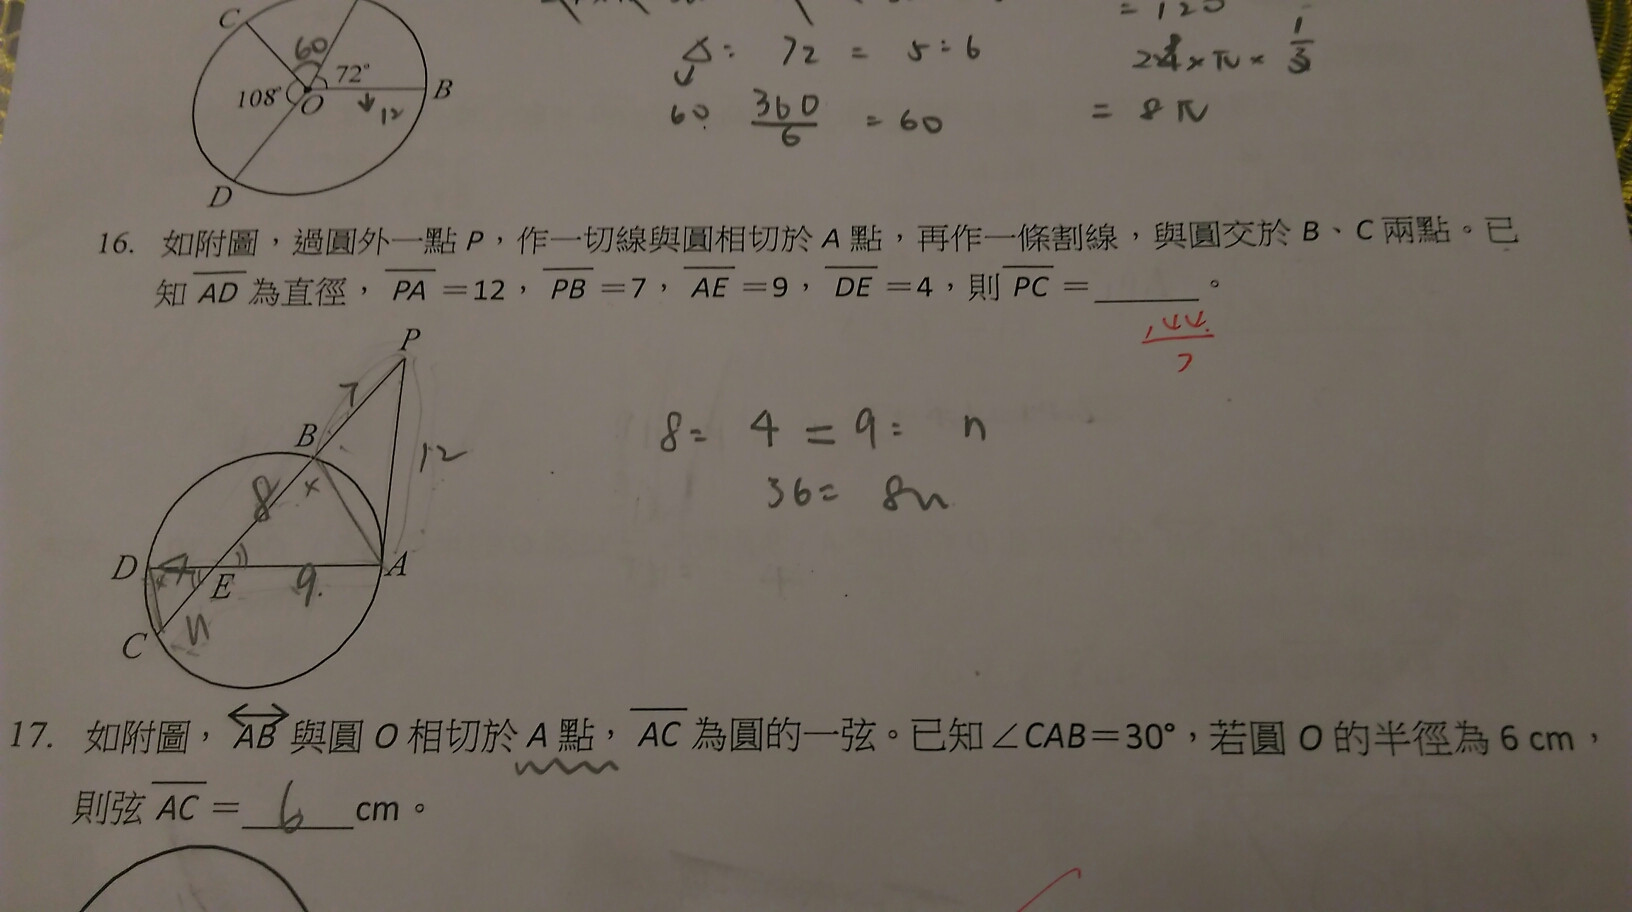 C
60
72°
108°
O
12
B
D
72 = 5 : 6
60
360
6
= 60
= 120
24 × π × 1/3
= 8π
16. 如附圖，過圓外一點 P，作一切線與圓相切於 A 點，再作一條割線，與圓交於 B、C 兩點。已
知 AD 為直徑，PA =12，PB =7，AE =9，DE =4，則 PC = ______。
144
7
P
7
B
12
8
x
D
4
E
9.
A
C
n
8= 4 = 9: n
36= 8n
17. 如附圖，AB 與圓 O 相切於 A 點，AC 為圓的一弦。已知∠CAB=30°，若圓 O 的半徑為 6 cm，
則弦 AC = 6 cm。